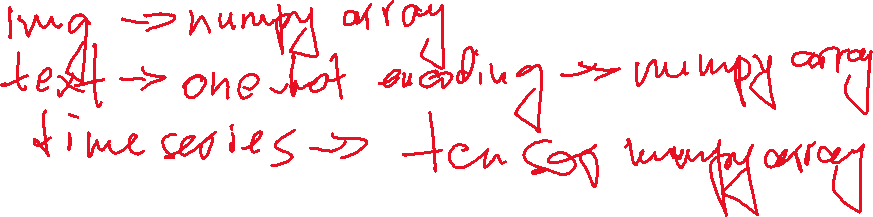 img → numpy array
text → one hot encoding → numpy array
time series → tensor numpy array